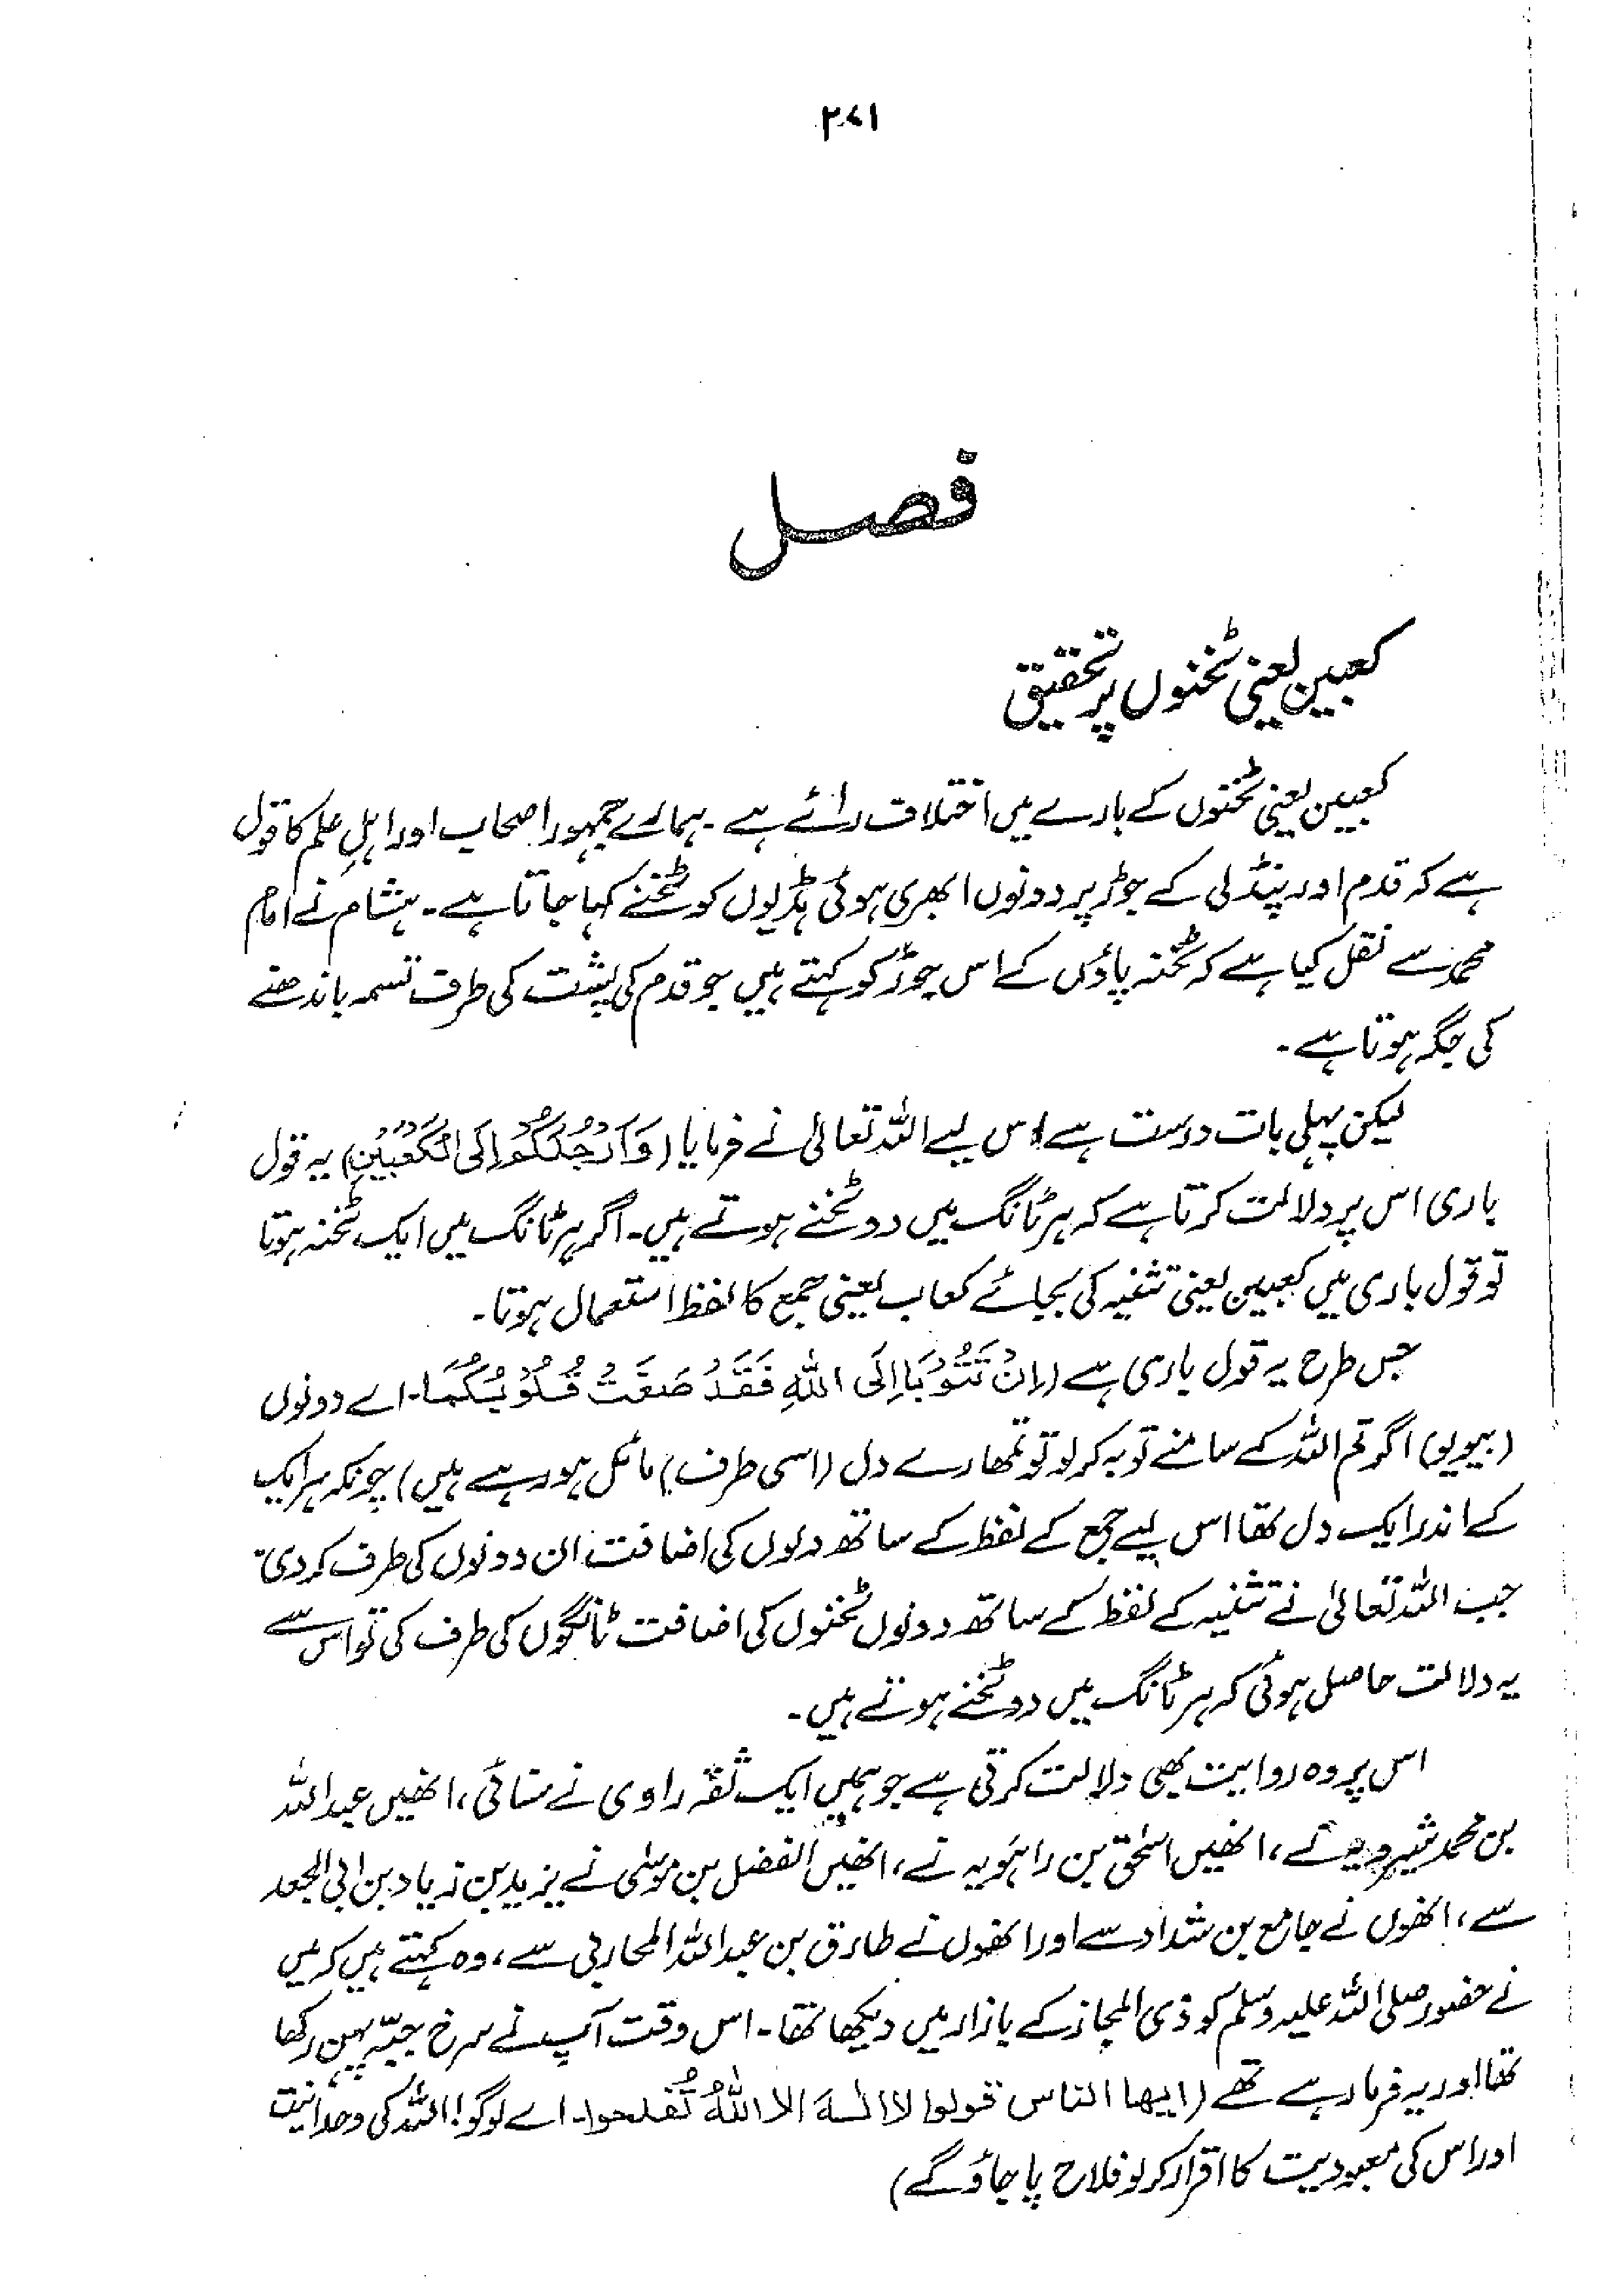 ۲۷۱
فصل
کعبین یعنی ٹخنوں پر تحقیق
کعبین یعنی ٹخنوں کے بارے میں اختلاف رائے ہے۔ ہمارے جمہور اصحاب اور اہلِ علم کا قول
ہے کہ قدم اور پنڈلی کے جوڑ پر دونوں ابھری ہوئی ہڈیوں کو ٹخنے کہا جاتا ہے۔ ہشام نے امام
محمد سے نقل کیا ہے کہ ٹخنہ پاؤں کے اس جوڑ کو کہتے ہیں جو قدم کی پشت کی طرف تسمہ باندھنے
کی جگہ ہوتا ہے۔
لیکن پہلی بات درست ہے اس لیے اللہ تعالیٰ نے فرمایا (وَاَرْجُلَكُمْ اِلَى الْكَعْبَيْنِ) یہ قول
باری اس پر دلالت کرتا ہے کہ ہر ٹانگ میں دو ٹخنے ہوتے ہیں۔ اگر ہر ٹانگ میں ایک ٹخنہ ہوتا
تو قول باری میں کعبین یعنی تثنیہ کی بجائے کعاب یعنی جمع کا لفظ استعمال ہوتا۔
جس طرح یہ قول باری ہے (اِنْ تَتُوْبَا اِلَى اللهِ فَقَدْ صَغَتْ قُلُوْبُكُمَا۔ اے دونوں
(بیویو) اگر تم اللہ کے سامنے توبہ کر لو تو تمھارے دل (اسی طرف) مائل ہو رہے ہیں) چونکہ ہر ایک
کے اندر ایک دل تھا اس لیے جمع کے لفظ کے ساتھ دلوں کی اضافت ان دونوں کی طرف کر دی۔
جب اللہ تعالیٰ نے تثنیہ کے لفظ کے ساتھ دونوں ٹخنوں کی اضافت ٹانگوں کی طرف کی تو اس سے
یہ دلالت حاصل ہوئی کہ ہر ٹانگ میں دو ٹخنے ہوتے ہیں۔
اس پر وہ روایت بھی دلالت کرتی ہے جو ہمیں ایک ثقہ راوی نے سنائی، انھیں عبداللہ
بن محمد شیرویہ نے، انھیں اسحٰق بن راہویہ نے، انھیں الفضل بن موسیٰ نے یزید بن زیاد بن ابی الجعد
سے، انھوں نے جامع بن شداد سے اور انھوں نے طارق بن عبداللہ المحاربی سے، وہ کہتے ہیں کہ میں
نے حضور صلی اللہ علیہ وسلم کو ذی المجاز کے بازار میں دیکھا تھا۔ اس وقت آپ نے سرخ جبّہ پہن رکھا
تھا اور یہ فرما رہے تھے (ایہا الناس قولوا لا الہ الا اللهُ تُفلحوا۔ اے لوگو! اللہ کی وحدانیت
اور اس کی معبودیت کا اقرار کر لو فلاح پا جاؤ گے)